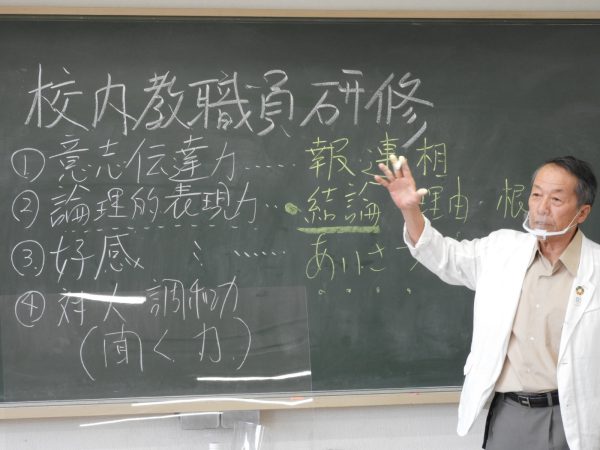 校内教職員研修
①意志伝達力……報・連・相
②論理的表現力…・結論 理由・根
③好感 ……あいさつ
④対人調和力
(聞く力)